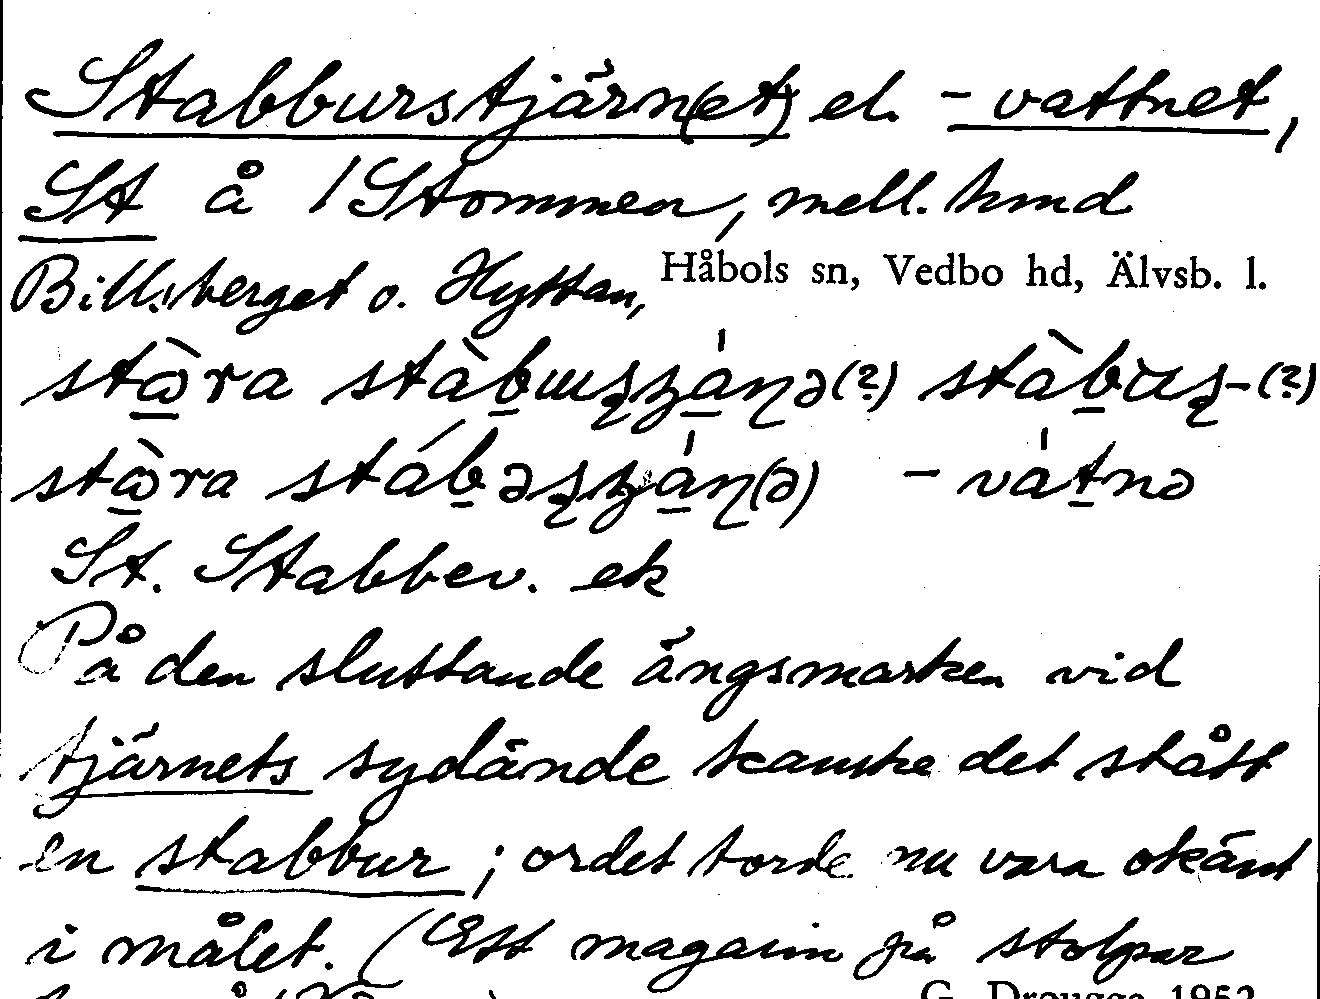 Stabburstjärn(et) el. -vattnet,
St å /Stommen, mell. hmd
Billsberget o. Hyttan, Håbols sn, Vedbo hd, Älvsb. l.
St. Stabbev. ek
På den sluttande ängsmarken vid
tjärnets sydände kanske det stått
en stabbur; ordet torde nu vara okänt
i målet. (Ett magasin på stolpar
G. Drougge 1952